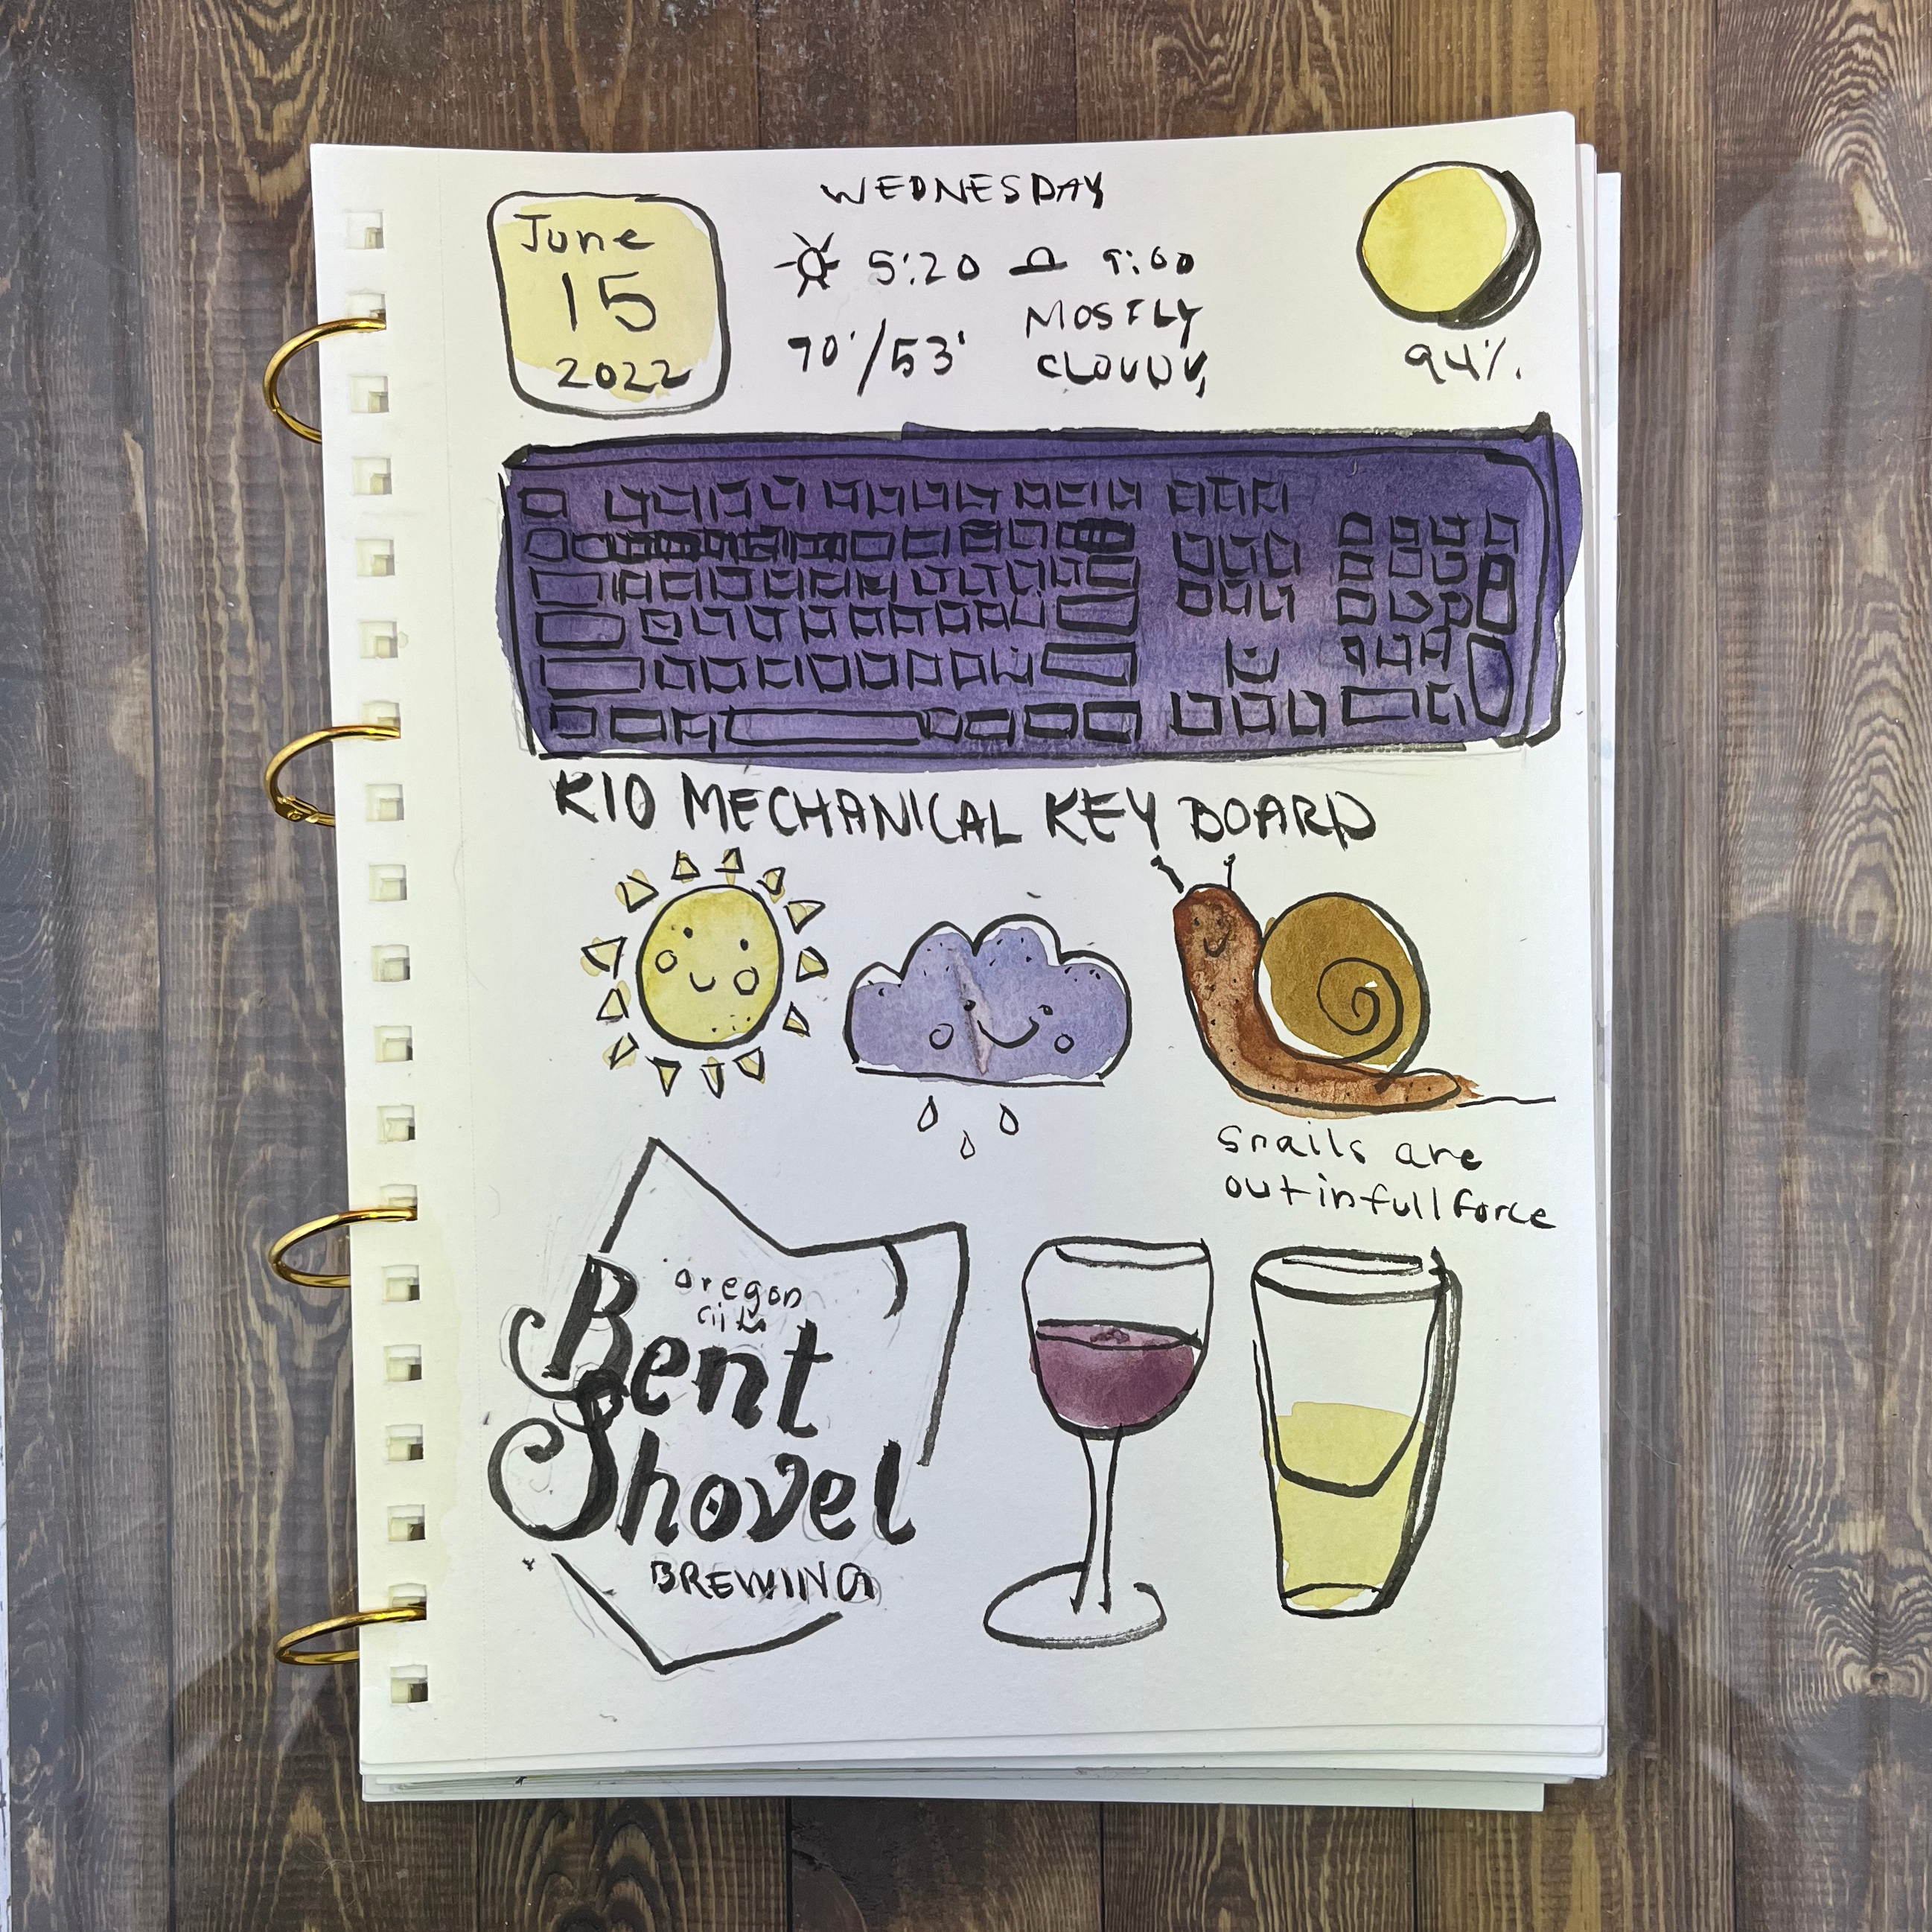 WEDNESDAY
June
15
2022
5:20 9:00
70°/53°
MOSTLY
CLOUDY
94%
K10 MECHANICAL KEYBOARD
Snails are
out in full force
oregon
city
Bent
Shovel
BREWING